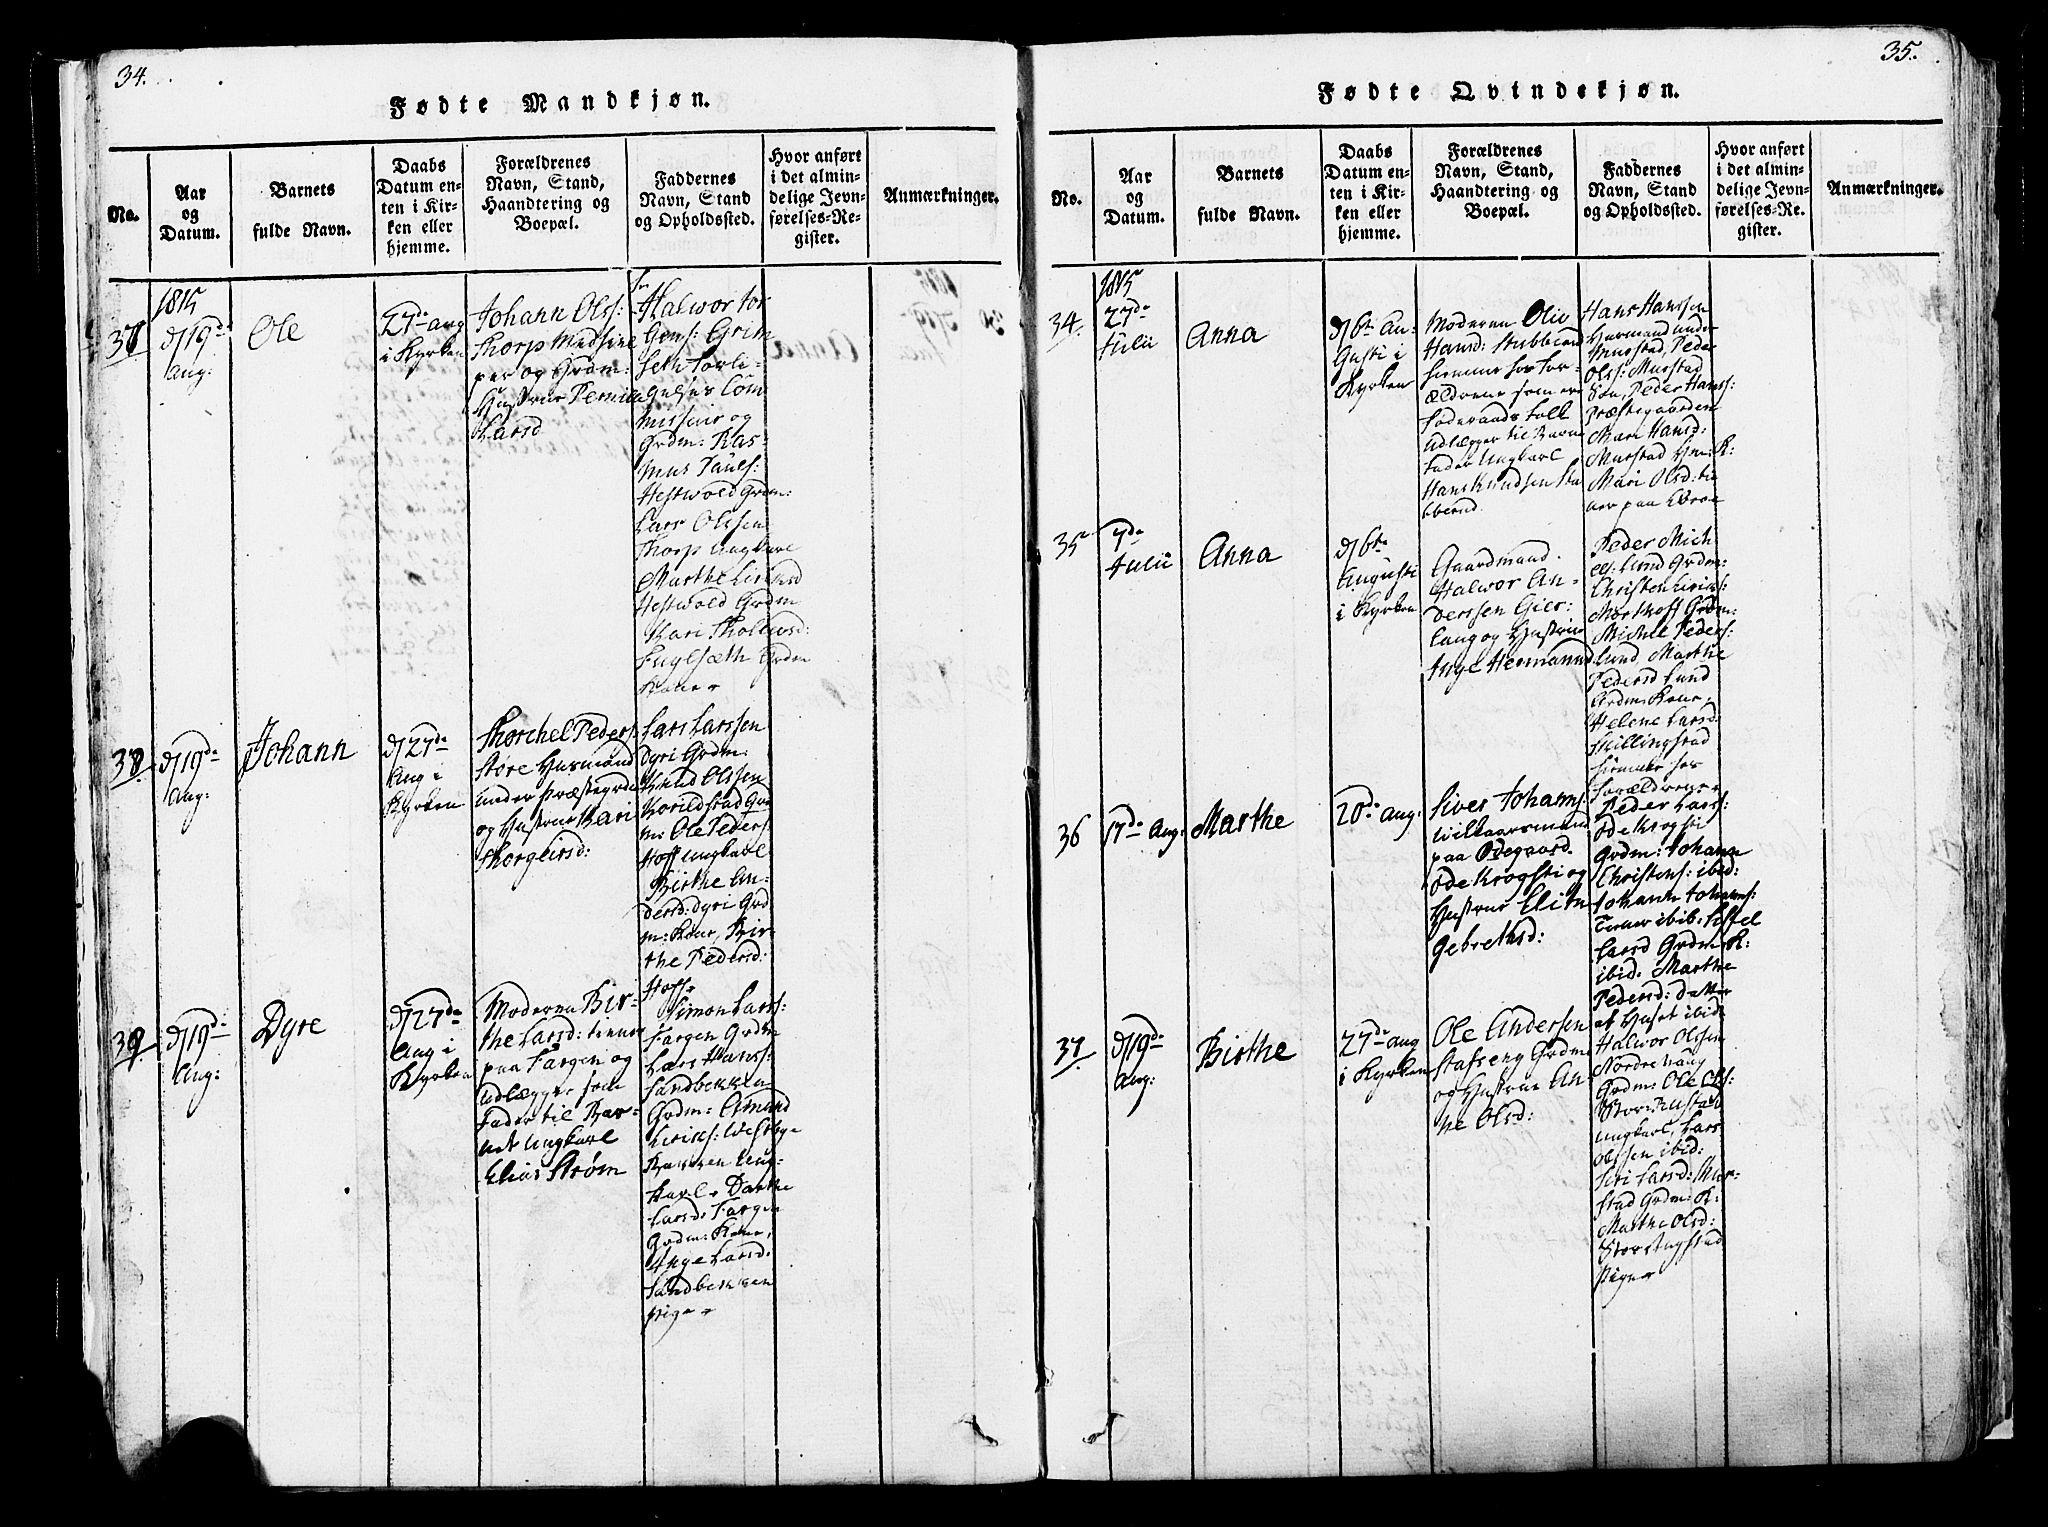 34.
Fødte Mandkjøn.
No.
Aar
og
Datum.
Barnets
fulde Navn.
Daabs
Datum en-
ten i Kir-
ken eller
hjemme.
Forældrenes
Navn, Stand,
Haandtering og
Boepæl.
Faddernes
Navn, Stand
og Opholdssted.
Hvor anført
i det almin-
delige Jevn-
førelses-Re-
gister.
Anmærkninger.
37
1815
d 19de
Aug:
Ole
27de Aug
i Kyrken
Johann Olss:
Thorp
og Grdm:
Hustrue Pernille
Larsd
Halwor Tor
Gens: Grim
seth
og
Grdm: Ras-
mus Pauls:
Hestwold Grdm:
Lars Olssen
Thorp Ungkarl
Marthe
Hestwold Grdm
Kari
Fuglsæth Grdm
Kone
38
d 19de
Aug:
Johann
d 27de
Aug i
Kyrken
Thorchel Peders:
Støre Husmand
under Præstegrdn
og Hustrue Kari
Thorgeirsd:
Lars Larssen
Dyri Grdm:
Knud Olssen
Korildstad Grd
m: Ole Peders:
Hoff Ungkarl
Birthe An-
dersd: Dyri Grd
m: Kone, Bir-
the Pedersd:
Hoff
39
d 19de
Aug:
Dyre
d 27de
Aug i
Kyrken
Moderen Bir-
the Larsd: tienner
paa Fargen og
udlægger som
Fader til Bar-
net Ungkarl
Elias Strøm
Simon Lars:
Fargen Grdm
Lars Hans:
Sandbekken
Grdm: Amund
Westbye
Ung-
karl Dorthe
Larsd: Fargen
Grdm: Kone,
Inge Larsd:
Sandbekken
Pige
35.
Fødte Qvindekjøn.
No.
Aar
og
Datum.
Barnets
fulde Navn.
Daabs
Datum en-
ten i Kir-
ken eller
hjemme.
Forældrenes
Navn, Stand,
Haandtering og
Boepæl.
Faddernes
Navn, Stand
og Opholdssted.
Hvor anført
i det almin-
delige Jevn-
førelses-Re-
gister.
Anmærkninger.
34
1815
27de
Julii
Anna
d 6te Au-
gusti i
Kyrken
Moderen Oliv
Hansd: Stubberud
hiemme hos For-
ældrene som er
Føderaads Folk
udlægger til Barne
fader Ungkarl
Hans Knudsen Stu
bberud
Hans Hanssen
Husmand under
Mustad, Peder
Olss: Mustad
Peder Hanss:
Præstegaarden
Mari Hansd:
Mustad Hm: K:
Mari Olsd: tie
ner paa
35
7de
Julii
Anna
d 6te
Augusti
i Kyrken
Gaardmand
Halwor An-
derssen Gier-
laug og Hustrue
Inge Hermannsd
Peder Mich
els: Lund Grdm:
Christen
Morthoff Grdm:
Michel Peders:
Lund, Marthe
Pedersd Lund
Grdm: Kone,
Helene Larsd:
Skillingstad
hiemme hos
Forældrene
36
17de Aug:
Marthe
20de Aug:
Siver Johanns:
paa Ødegaard
Øde Krogsti og
Hustrue Elin
Gebrethsd:
Peder Larss:
Øde Krogsti
Grdm: Johann
Christens: ibid:
Johann Johanns:
Larsd Grdm: K:
ibid. Marthe
Pedersd: Datter
af Huset ibid
37
d 19de
Aug:
Birthe
27de Aug
i Kyrken
Ole Andersen
Stafseng Grdm
og Hustrue An-
ne Olsd:
Halwor Olssen
Nordre Haug
Grdm: Ole Ols:
Ungkarl, Lars
Olssen ibid:
Siri Larsd: Mu-
stad Grdm: K:
Marthe Olsd:
Pige